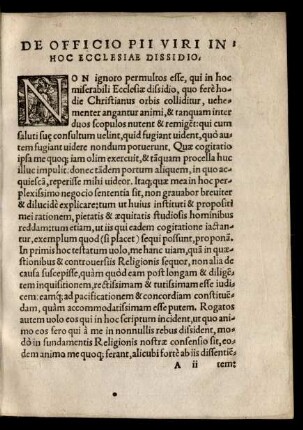 DE OFFICIO PII VIRI IN
HOC ECCLESIAE DISSIDIO.
NON ignoro permultos esse, qui in hoc
miserabili Ecclesiæ dissidio, quo ferè ho-
die Christianus orbis colliditur, uehe-
menter angantur animi, & tanquam inter
duos scopulos nutent & remigẽt: qui cum
saluti suę consultum uelint, quid fugiant uident, quò au-
tem fugiant uidere nondum potuerunt. Quæ cogitatio
ipsa me quoq; iam olim exercuit, & tãquam procella huc
illuc impulit: donec tãdem portum aliquem, in quo ac-
quiescã, reperisse mihi uideor. Itaq; quæ mea in hoc per-
plexissimo negocio sententia sit, non grauabor breuiter
& dilucidè explicare; tum ut huius instituti & propositi
mei rationem, pietatis & æquitatis studiosis hominibus
reddam: tum etiam, ut iis qui eadem cogitatione iactan-
tur, exemplum quod (si placet) sequi possunt, proponã.
In primis hoc testatum uolo, me hanc uiam, quã in quæ-
stionibus & controuersiis Religionis sequor, non alia de
causa suscepisse, quàm quòd eam post longam & diligẽ-
tem inquisitionem, rectissimam & tutissimam esse iudi-
cem: eamq; ad pacificationem & concordiam constituẽ-
dam, quàm accommodatissimam esse putem. Rogatos
autem uolo eos qui in hoc scriptum incident, ut quo ani-
mo eos fero qui à me in nonnullis rebus dissident, mo-
dò in fundamentis Religionis nostræ consensio sit, eo-
dem animo me quoq; ferant, alicubi fortè ab iis dissentiẽ-
A ii tem: